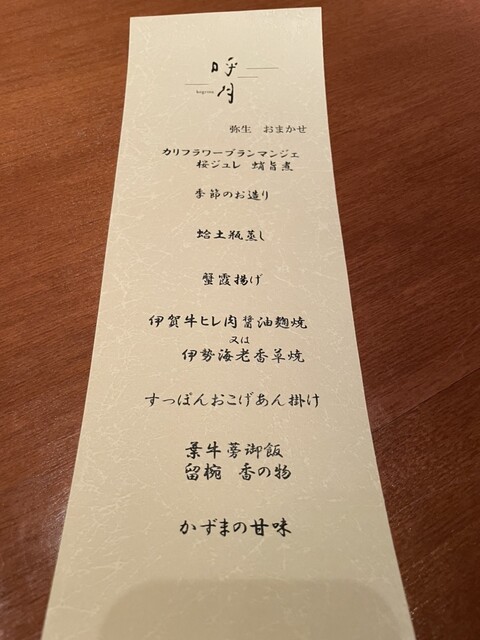 呼月
弥生 おまかせ
カリフラワーブランマンジェ
桜ジュレ 蛸旨煮
季節のお造り
蛤土瓶蒸し
蟹霞揚げ
伊賀牛ヒレ肉醤油麹焼
又は
伊勢海老香草焼
すっぽんおこげあん掛け
葉牛蒡御飯
留椀 香の物
かずまの甘味